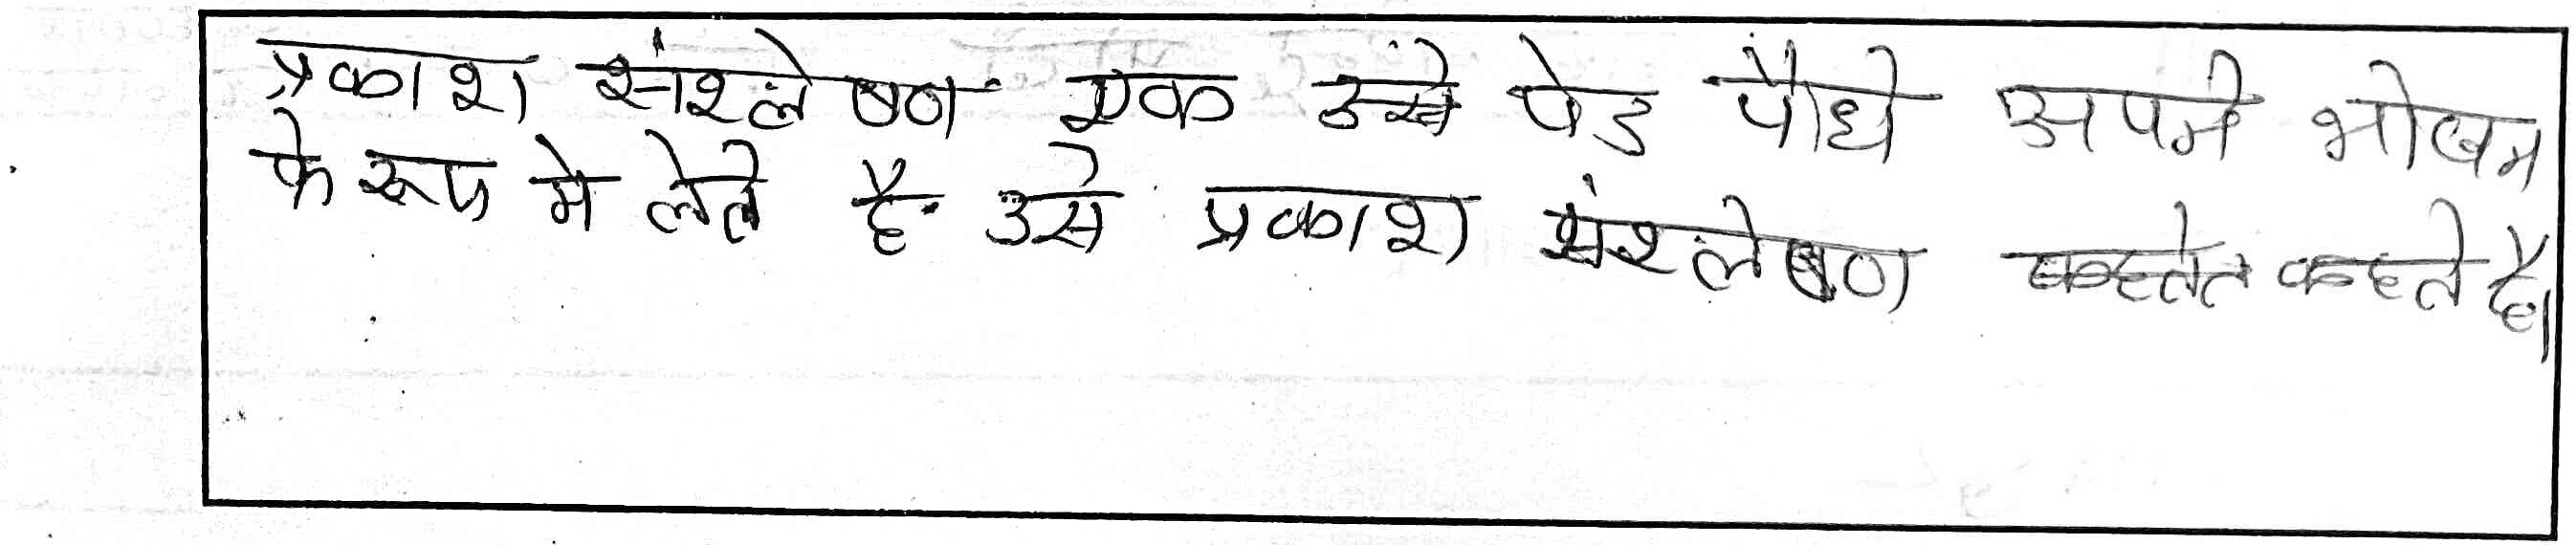 प्रकाश संश्लेषण एक उसे पेड पौधे अपने भोजन
के रूप मे लेते है उसे प्रकाश संश्लेषण कहते है।